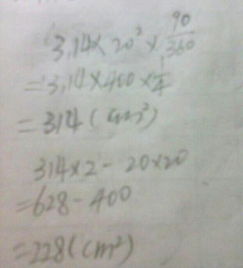 3.14×20²×90/360
=3.14×400×1/4
=314(cm²)
314×2-20×20
=628-400
=228(cm²)